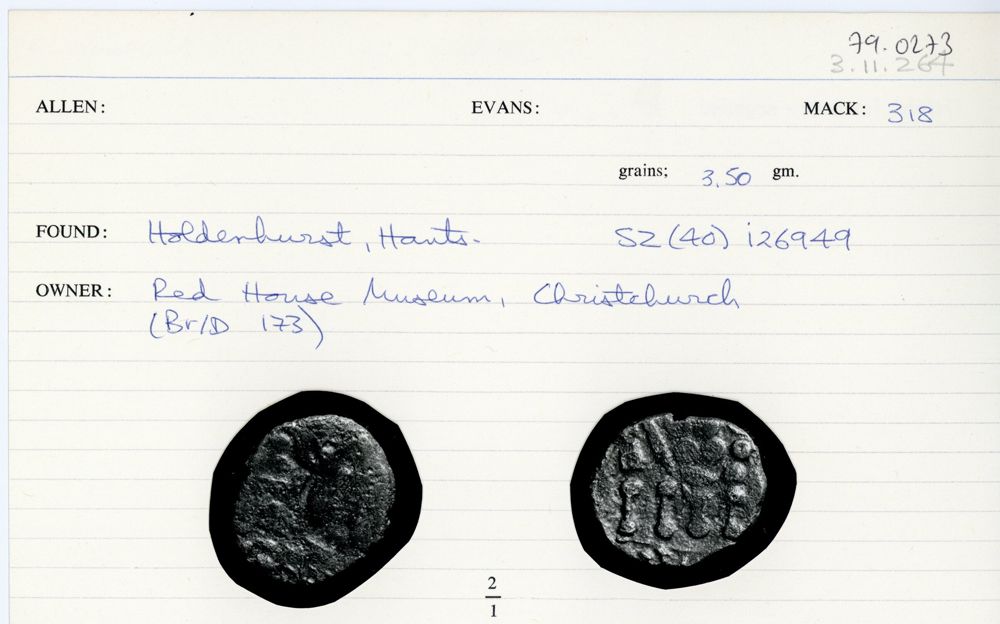 79.0273
3.11.264
ALLEN: EVANS: MACK: 318
grains; 3.50 gm.
FOUND: Holdenhurst, Hants. SZ(40) 126949
OWNER: Red House Museum, Christchurch
(Br/D 173)
2
1